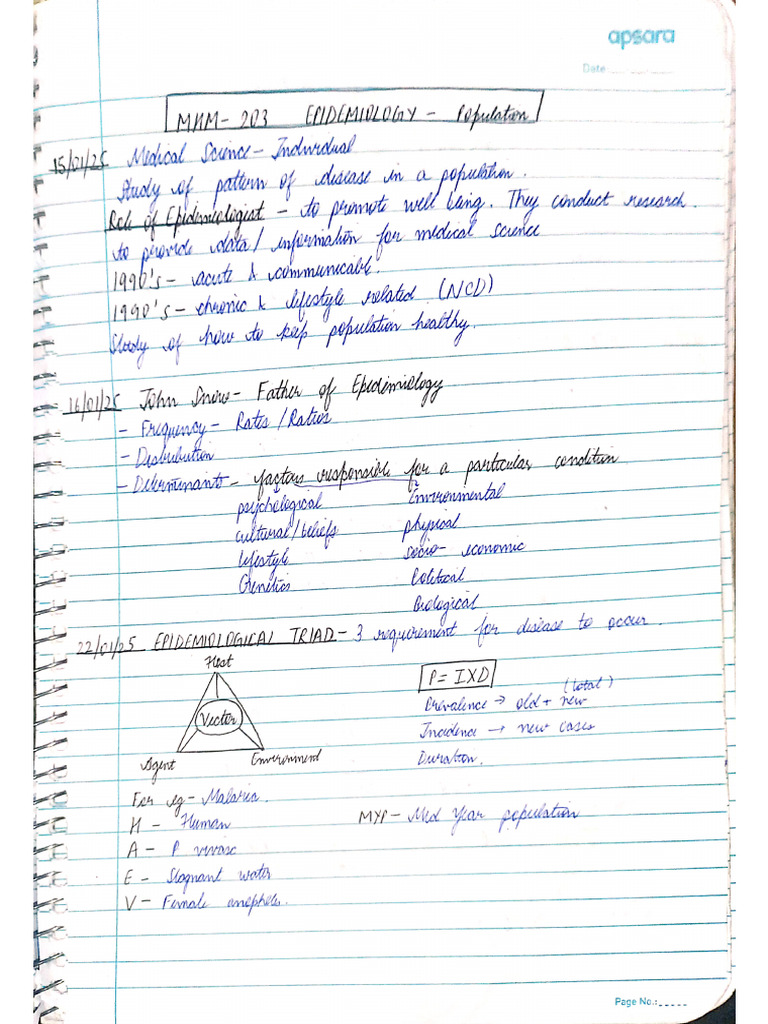 apsara
Date
MHM-203 EPIDEMIOLOGY - Population
15/01/25 Medical Science - Individual
Study of pattern of disease in a population.
Role of Epidemiologist - to promote well being. They conduct research
to provide data/ information for medical science
1990's - acute & communicable.
1990's - chronic & lifestyle related (NCD)
Study of how to keep population healthy.
16/01/25 John Snow - Father of Epidemiology
- Frequency - Rates / Ratios
- Distribution
- Determinant - factors responsible for a particular condition
psychological Environmental
cultural/beliefs physical
lifestyle socio-economic
Genetics Political
Biological
22/01/25 EPIDEMIOLOGICAL TRIAD - 3 requirement for disease to occur.
Host
P = IXD
(total)
Prevalence → old + new
Vector
Incidence → new cases
Agent Environment
Duration.
For eg - Malaria.
H - Human MYP - Mid Year population
A - P vivax
E - Stagnant water
V - Female anopheles.
Page No.: